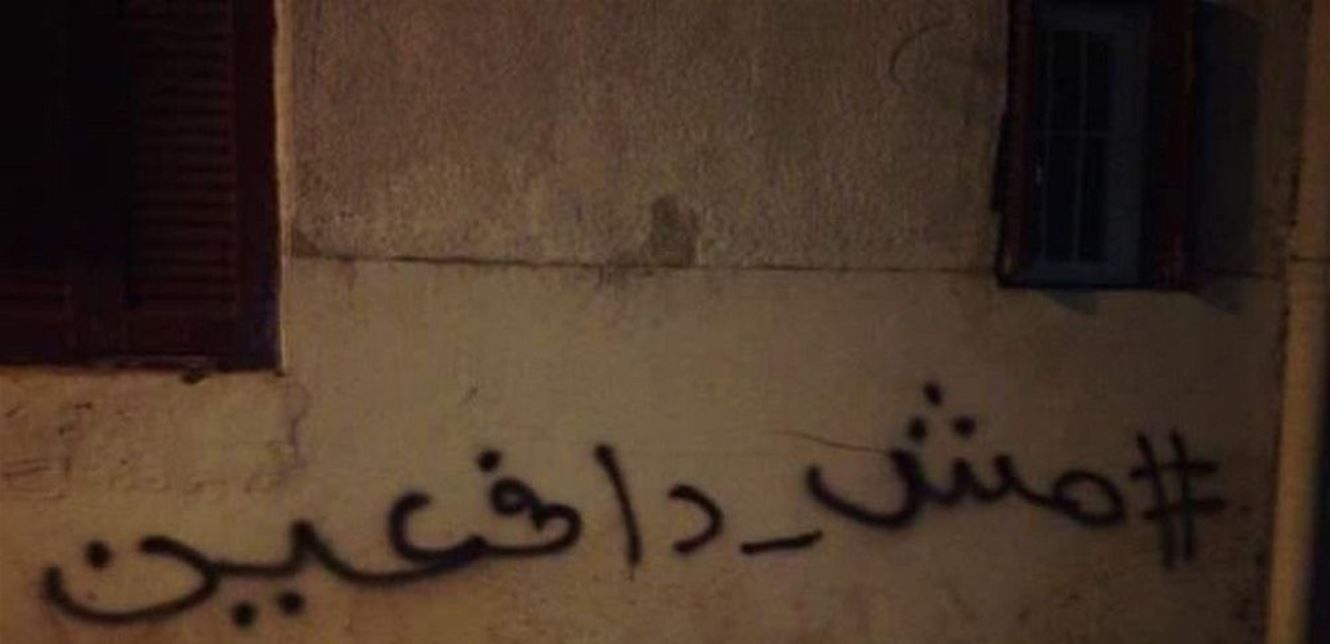 #مش_دافعين